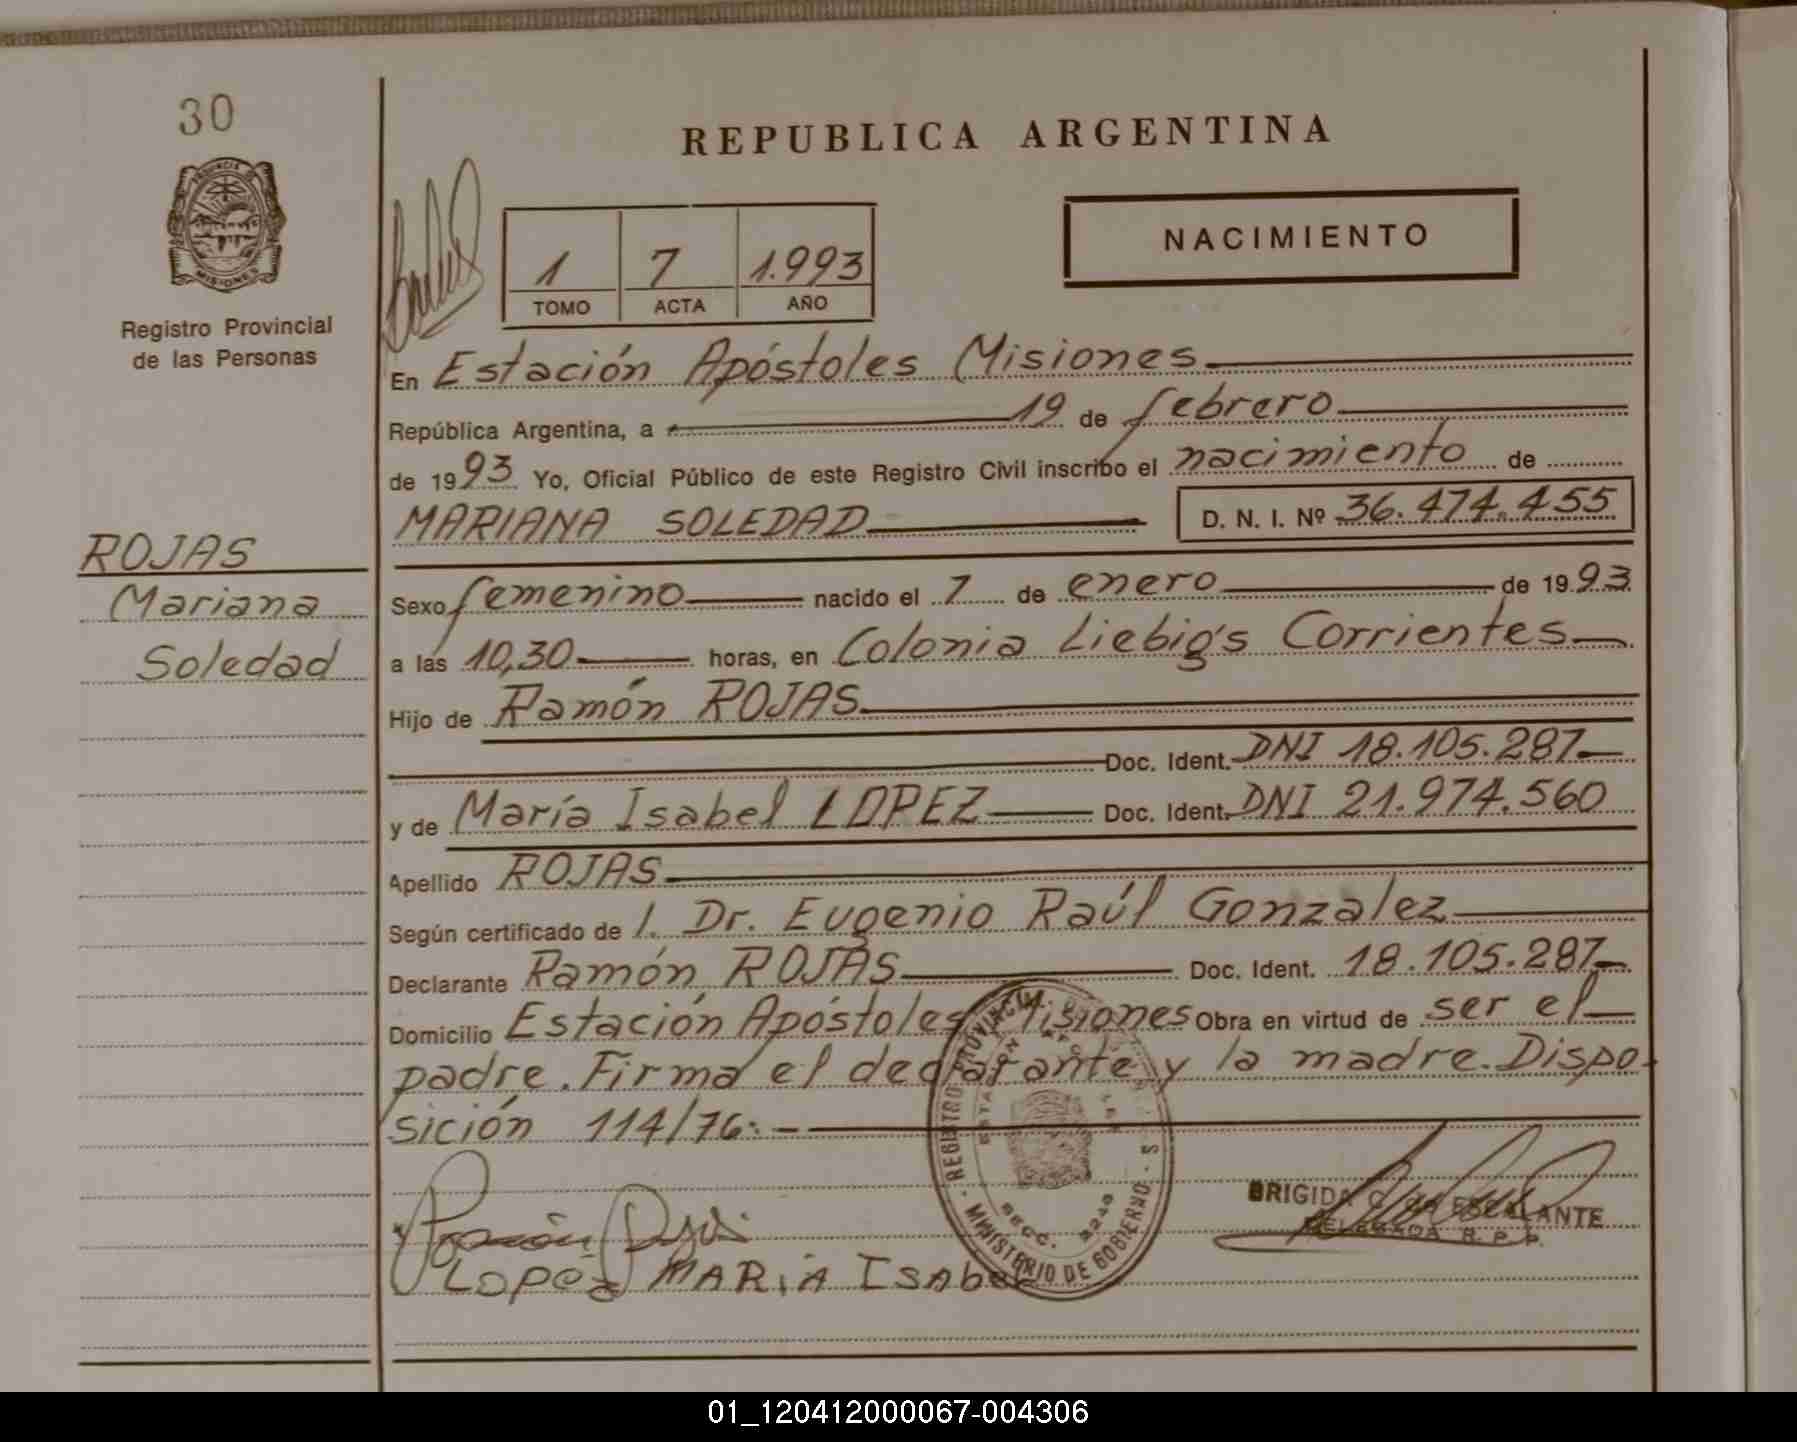 30
PROVINCIA DE
MISIONES
Registro Provincial
de las Personas
ROJAS
Mariana
Soledad
REPUBLICA ARGENTINA
NACIMIENTO
1 7 1.993
TOMO ACTA AÑO
En Estación Apóstoles Misiones
República Argentina, a 19 de febrero
de 1993 Yo, Oficial Público de este Registro Civil inscribo el nacimiento de
MARIANA SOLEDAD D. N. I. Nº 36.474.455
Sexo femenino nacido el 7 de enero de 1993
a las 10,30 horas, en Colonia Liebig's Corrientes
Hijo de Ramón ROJAS
Doc. Ident. DNI 18.105.287
y de María Isabel LOPEZ Doc. Ident. DNI 21.974.560
Apellido ROJAS
Según certificado de l. Dr. Eugenio Raúl Gonzalez
Declarante Ramón ROJAS Doc. Ident. 18.105.287
Domicilio Estación Apóstoles Misiones Obra en virtud de ser el
padre. Firma el declarante y la madre. Dispo-
sición 114/76.-
REGISTRO PROVINCIAL
MINISTERIO DE GOBIERNO
SECC. 3249
BRIGIDA C. DE ESCALANTE
DELEGADA R. P. P.
Ramón Rojas
LOPEZ MARIA ISABEL
01_120412000067-004306